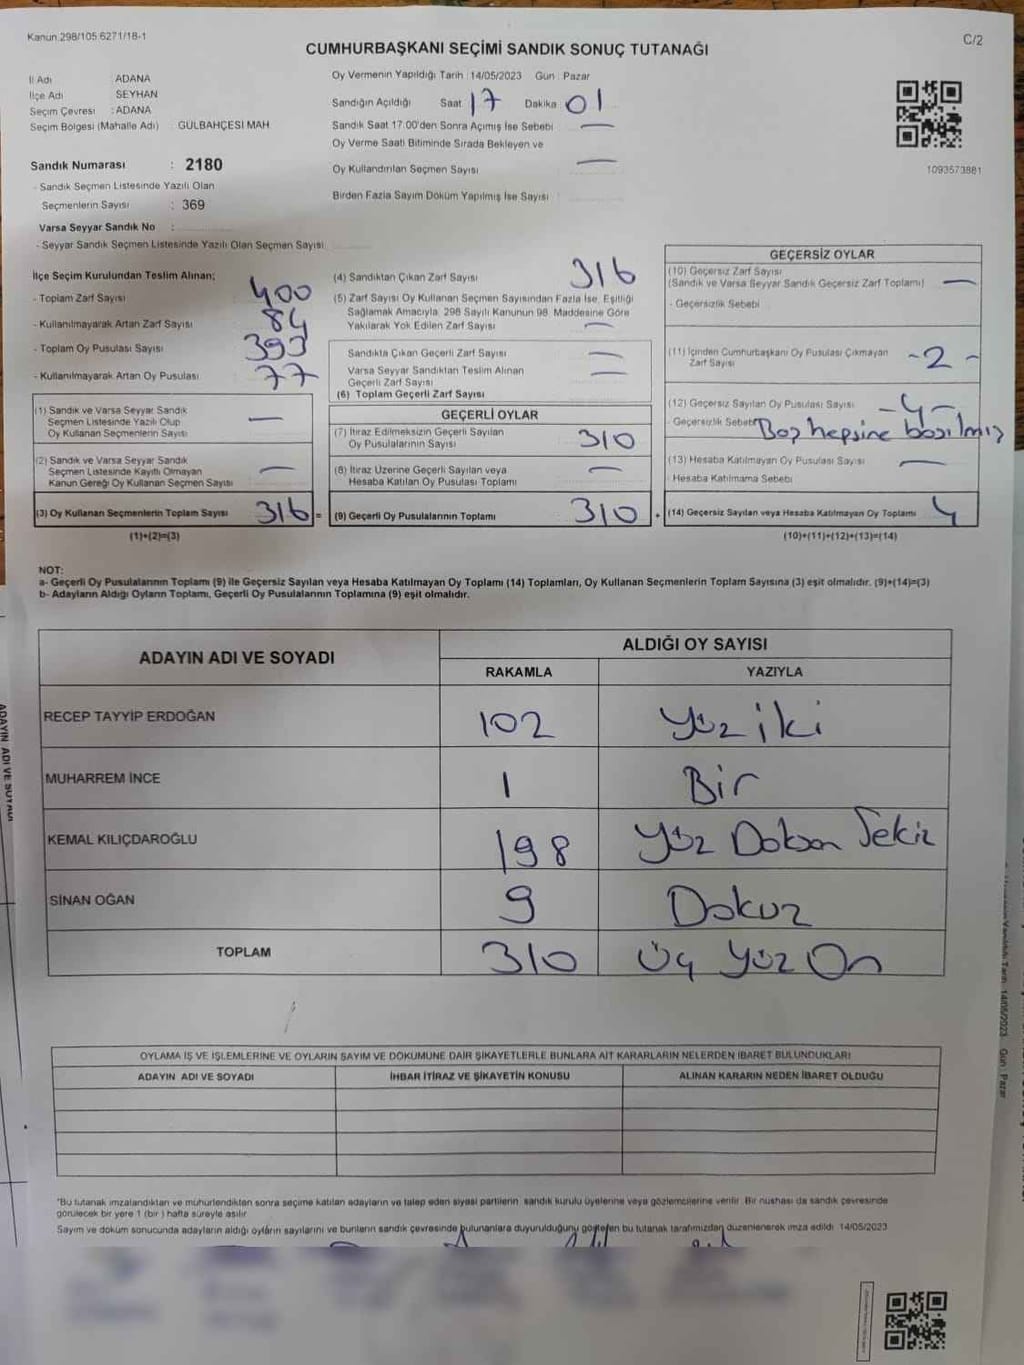 Kanun.298/105.6271/18-1
C/2
CUMHURBAŞKANI SEÇİMİ SANDIK SONUÇ TUTANAĞI
İl Adı : ADANA
İlçe Adı : SEYHAN
Seçim Çevresi : ADANA
Seçim Bölgesi (Mahalle Adı) : GÜLBAHÇESİ MAH
Sandık Numarası : 2180
- Sandık Seçmen Listesinde Yazılı Olan
Seçmenlerin Sayısı : 369
Varsa Seyyar Sandık No :
- Seyyar Sandık Seçmen Listesinde Yazılı Olan Seçmen Sayısı
Oy Vermenin Yapıldığı Tarih : 14/05/2023 Gün : Pazar
Sandığın Açıldığı Saat 17 Dakika 01
Sandık Saat 17:00'den Sonra Açılmış İse Sebebi —
Oy Verme Saati Bitiminde Sırada Bekleyen ve
Oy Kullandırılan Seçmen Sayısı —
Birden Fazla Sayım Döküm Yapılmış İse Sayısı :
1093573881
İlçe Seçim Kurulundan Teslim Alınan;
- Toplam Zarf Sayısı 400
- Kullanılmayarak Artan Zarf Sayısı 84
- Toplam Oy Pusulası Sayısı 393
- Kullanılmayarak Artan Oy Pusulası 77
(1) Sandık ve Varsa Seyyar Sandık
Seçmen Listesinde Yazılı Olup
Oy Kullanan Seçmenlerin Sayısı —
(2) Sandık ve Varsa Seyyar Sandık
Seçmen Listesinde Kayıtlı Olmayan
Kanun Gereği Oy Kullanan Seçmen Sayısı —
(3) Oy Kullanan Seçmenlerin Toplam Sayısı 316 =
(1)+(2)=(3)
(4) Sandıktan Çıkan Zarf Sayısı 316
(5) Zarf Sayısı Oy Kullanan Seçmen Sayısından Fazla İse, Eşitliği
Sağlamak Amacıyla, 298 Sayılı Kanunun 98. Maddesine Göre
Yakılarak Yok Edilen Zarf Sayısı —
Sandıkta Çıkan Geçerli Zarf Sayısı —
Varsa Seyyar Sandıktan Teslim Alınan
Geçerli Zarf Sayısı —
(6) Toplam Geçerli Zarf Sayısı
GEÇERLİ OYLAR
(7) İtiraz Edilmeksizin Geçerli Sayılan
Oy Pusulalarının Sayısı 310
(8) İtiraz Üzerine Geçerli Sayılan veya
Hesaba Katılan Oy Pusulası Toplamı —
(9) Geçerli Oy Pusulalarının Toplamı 310 +
GEÇERSİZ OYLAR
(10) Geçersiz Zarf Sayısı
(Sandık ve Varsa Seyyar Sandık Geçersiz Zarf Toplamı) —
- Geçersizlik Sebebi :
(11) İçinden Cumhurbaşkanı Oy Pusulası Çıkmayan
Zarf Sayısı -2-
(12) Geçersiz Sayılan Oy Pusulası Sayısı -4-
- Geçersizlik Sebebi Boş hepsine basılmış
(13) Hesaba Katılmayan Oy Pusulası Sayısı —
- Hesaba Katılmama Sebebi
(14) Geçersiz Sayılan veya Hesaba Katılmayan Oy Toplamı 4
(10)+(11)+(12)+(13)=(14)
NOT:
a- Geçerli Oy Pusulalarının Toplamı (9) ile Geçersiz Sayılan veya Hesaba Katılmayan Oy Toplamı (14) Toplamları, Oy Kullanan Seçmenlerin Toplam Sayısına (3) eşit olmalıdır. (9)+(14)=(3)
b- Adayların Aldığı Oyların Toplamı, Geçerli Oy Pusulalarının Toplamına (9) eşit olmalıdır.
ADAYIN ADI VE SOYADI
ALDIĞI OY SAYISI
RAKAMLA YAZIYLA
RECEP TAYYİP ERDOĞAN 102 Yüz iki
MUHARREM İNCE 1 Bir
KEMAL KILIÇDAROĞLU 198 Yüz Doksan Sekiz
SİNAN OĞAN 9 Dokuz
TOPLAM 310 Üç Yüz On
OYLAMA İŞ VE İŞLEMLERİNE VE OYLARIN SAYIM VE DÖKÜMÜNE DAİR ŞİKAYETLERLE BUNLARA AİT KARARLARIN NELERDEN İBARET BULUNDUKLARI
ADAYIN ADI VE SOYADI İHBAR İTİRAZ VE ŞİKAYETİN KONUSU ALINAN KARARIN NEDEN İBARET OLDUĞU
*Bu tutanak imzalandıktan ve mühürlendikten sonra seçime katılan adayların ve talep eden siyasi partilerin sandık kurulu üyelerine veya gözlemcilerine verilir. Bir nüshası da sandık çevresinde
görülecek bir yere 1 (bir) hafta süreyle asılır.
Sayım ve döküm sonucunda adayların aldığı oyların sayılarını ve bunların sandık çevresinde bulunanlara duyurulduğunu gösteren bu tutanak tarafımızdan düzenlenerek imza edildi. 14/05/2023
ADAYIN ADI VE SOYADI
Tarih : 14/05/2023 Gün : Pazar